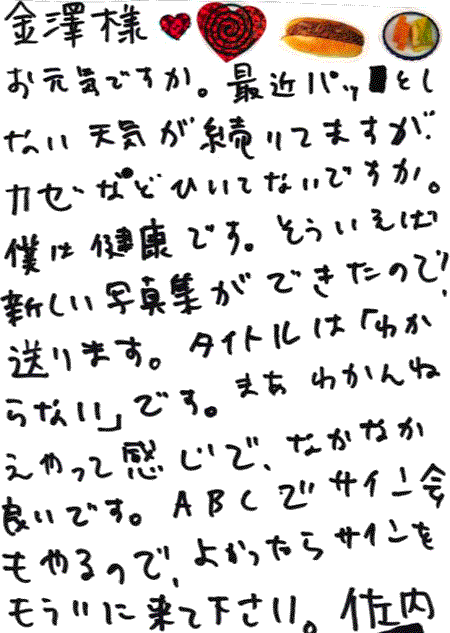 金澤様
お元気ですか。最近パッとし
ない天気が続いてますが、
カゼなどひいてないですか。
僕は健康です。そういえば
新しい写真集ができたので、
送ります。タイトルは「わか
らない」です。まあわかんね
えやって感じで、なかなか
良いです。ABCでサイン会
もやるので、よかったらサインを
もらいに来て下さい。佐内